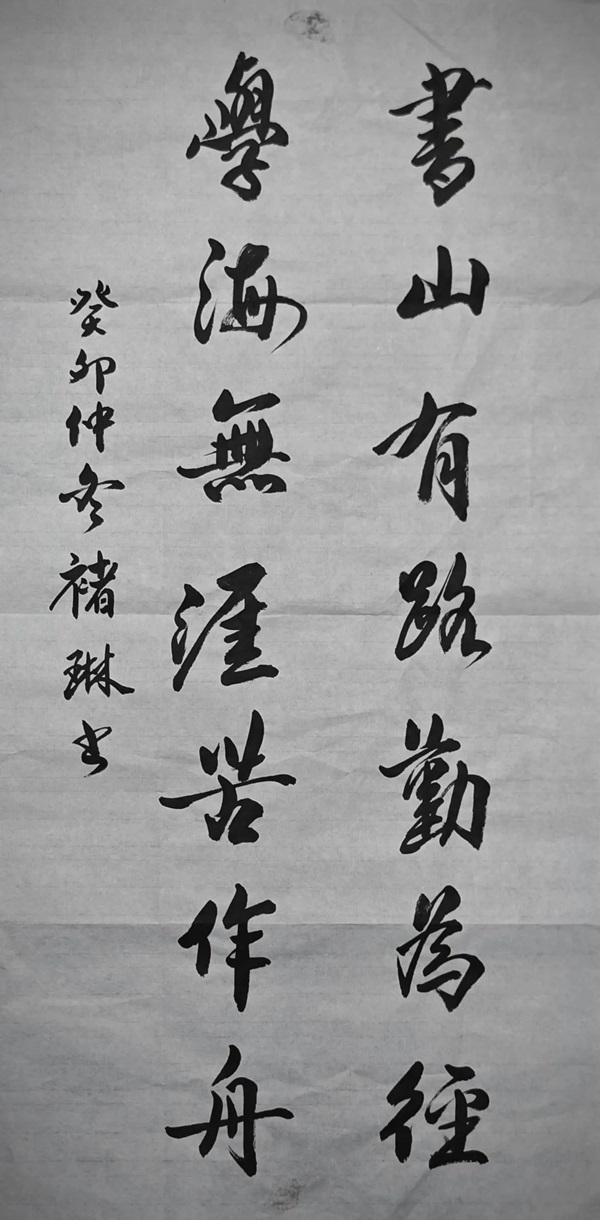 書山有路勤為徑
學海無涯苦作舟
癸卯仲冬褚琳书